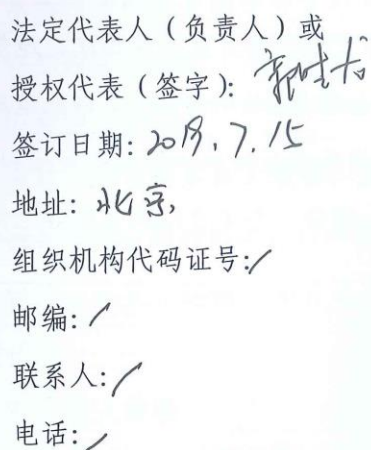 法定代表人（负责人）或
授权代表（签字）：
签订日期：2019.7.15
地址：北京，
组织机构代码证号：/
邮编：/
联系人：/
电话：/